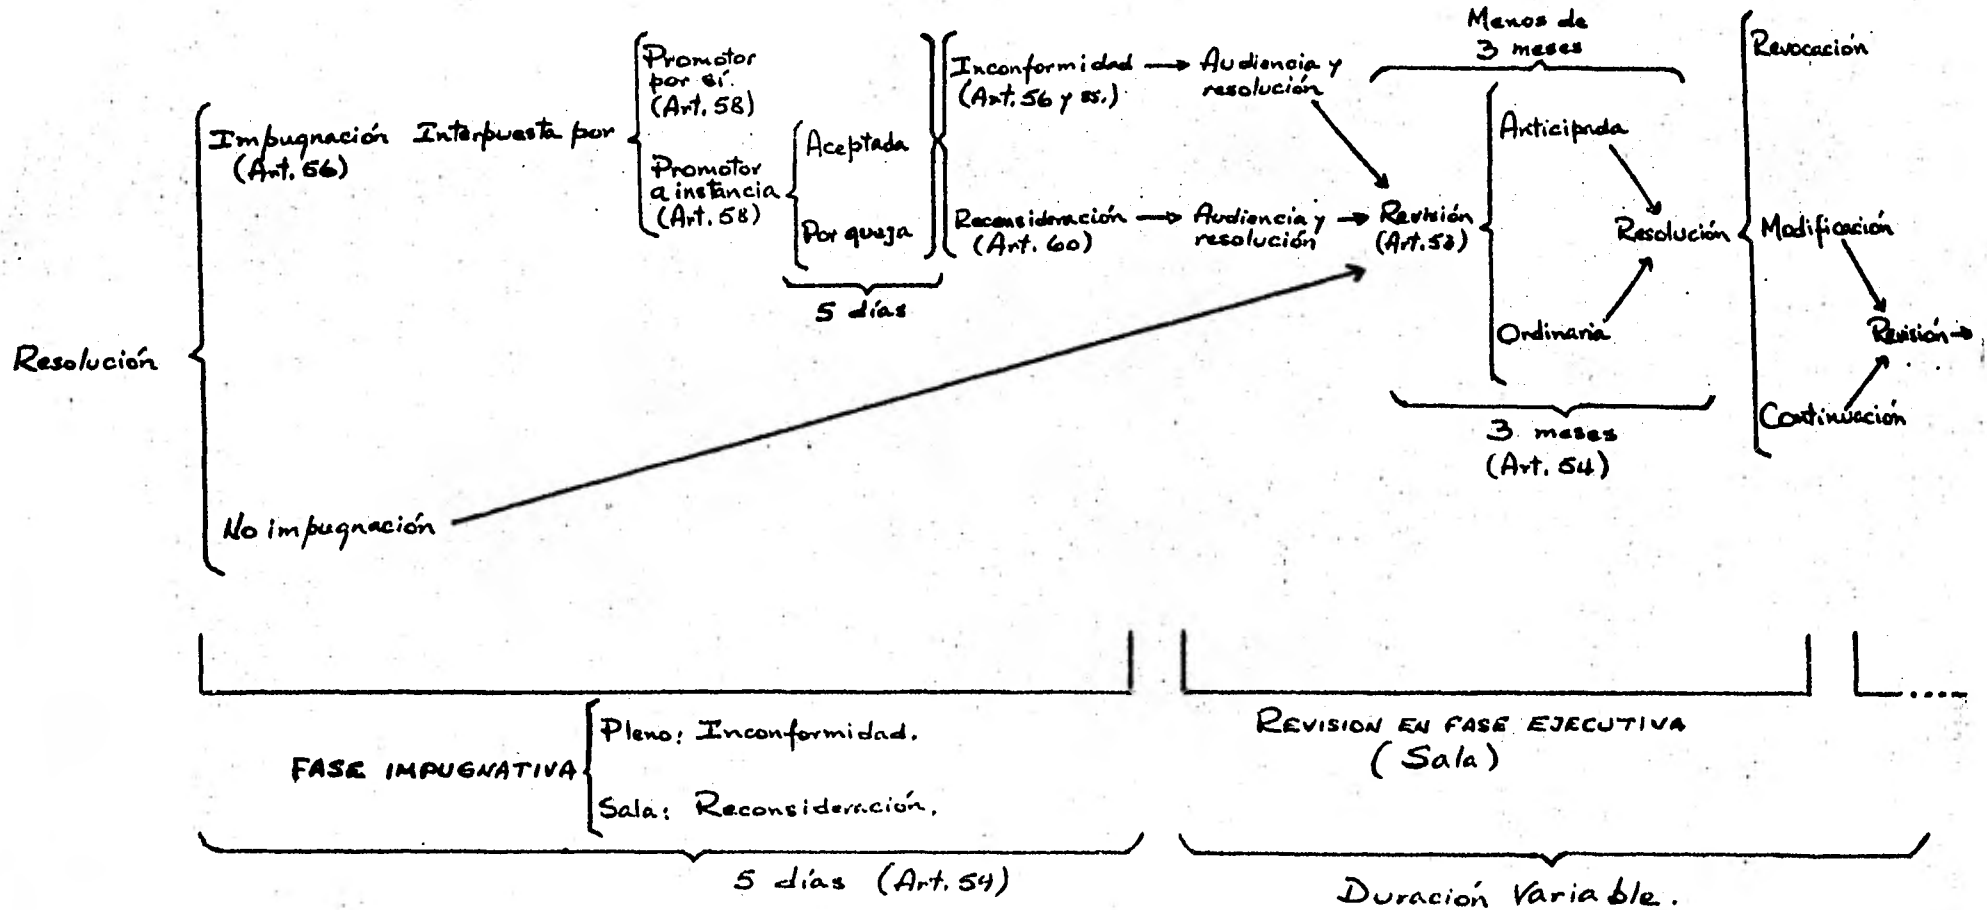 Resolución
Impugnación Interpuesta por
(Art. 56)
Promotor
por sí.
(Art. 58)
Promotor
a instancia
(Art. 58)
Aceptada
Por queja
5 días
Inconformidad → Audiencia y
(Art. 56 y ss.) resolución
Reconsideración → Audiencia y → Revisión
(Art. 60) resolución (Art. 53)
Menos de
3 meses
Anticipada
Resolución
Ordinaria
3 meses
(Art. 54)
Revocación
Modificación
Revisión →
Continuación
No impugnación
FASE IMPUGNATIVA
Pleno: Inconformidad.
Sala: Reconsideración.
5 días (Art. 59)
REVISION EN FASE EJECUTIVA
(Sala)
Duración Variable.